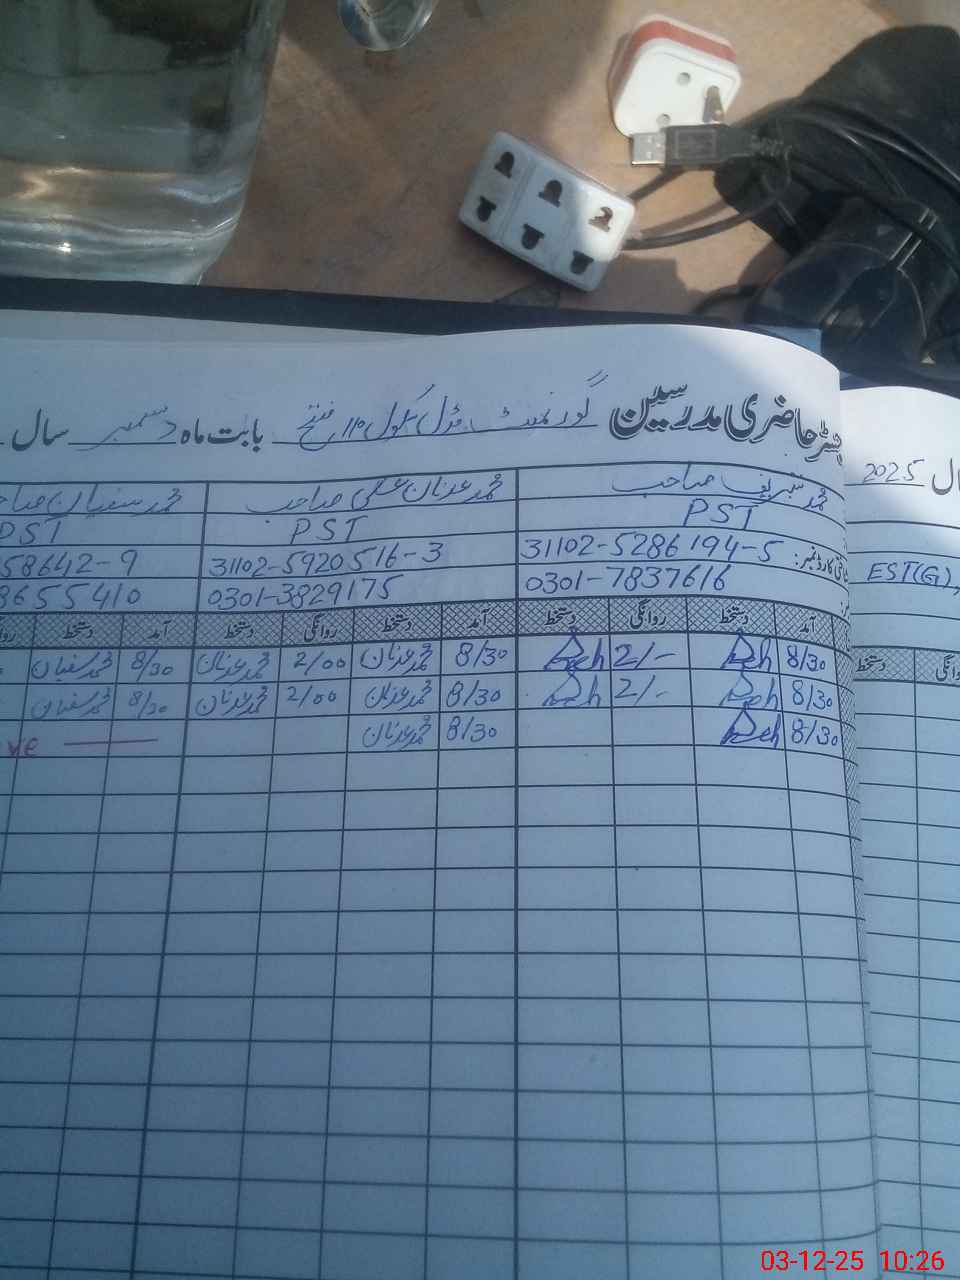 رجسٹر حاضری مدرسین گورنمنٹ مڈل سکول 110 فتح بابت ماہ دسمبر سال
سال 2025
محمد شریف صاحب محمد عدنان علی صاحب محمد سفیان
PST PST PST
شناختی کارڈ نمبر: 31102-5286194-5 31102-5920516-3 58642-9
0301-7837616 0301-3829175 8655410
EST(G),
آمد دستخط روانگی دستخط آمد دستخط روانگی دستخط آمد دستخط
دستخط
8/30 2/- 8/30 محمد عدنان 2/00 محمد عدنان 8/30 محمد سفیان
8/30 2/- 8/30 محمد عدنان 2/00 محمد عدنان 8/30 محمد سفیان
8/30 8/30 محمد عدنان
03-12-25 10:26